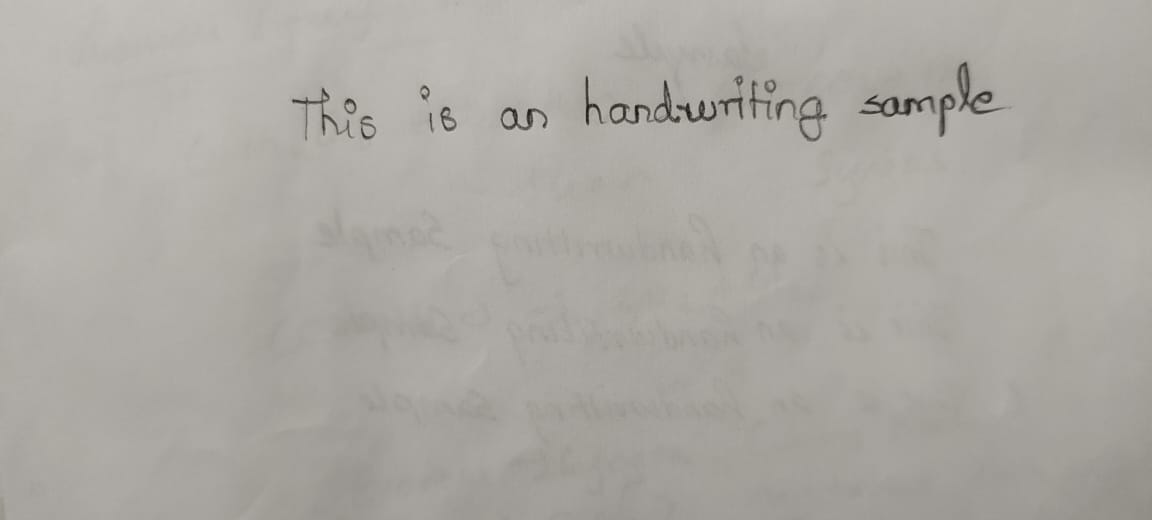 This is an handwriting sample